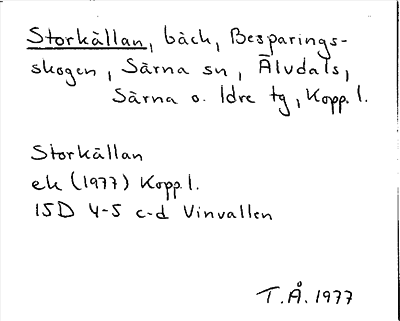 Storkällan, bäck, Besparings-
skogen, Särna sn, Älvdals,
Särna o. Idre tg, Kopp. l.
Storkällan
ek (1977) Kopp. l.
15D 4-5 c-d Vinvallen
T.Å. 1977